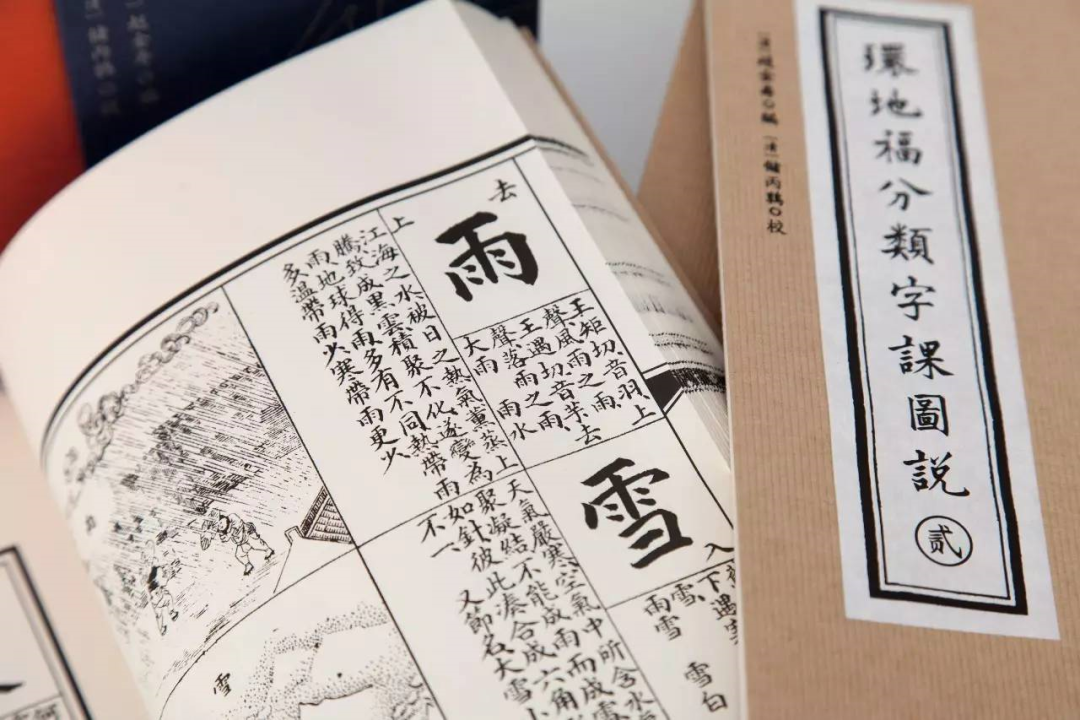 環地福分類字課圖說
貳
[清]趙金壽○編 [清]儲丙鶉○校
去
雨
上
王矩切、音羽、上
聲風雨之雨、
王遇切音芋去
聲落雨之雨
大雨 雨水
江海之水被日之熱氣薰蒸上
騰致成黑雲積聚不化遂變為
雨地球得雨多有不同熱帶雨
多溫帶雨少寒帶雨更少
雪
入
下遇
雪、
雨雪 雪白
天氣嚴寒空氣中所含水
聚凝結不能成雨而成雪
如針彼此湊合成六角
不一、 又節名大雪小
雪